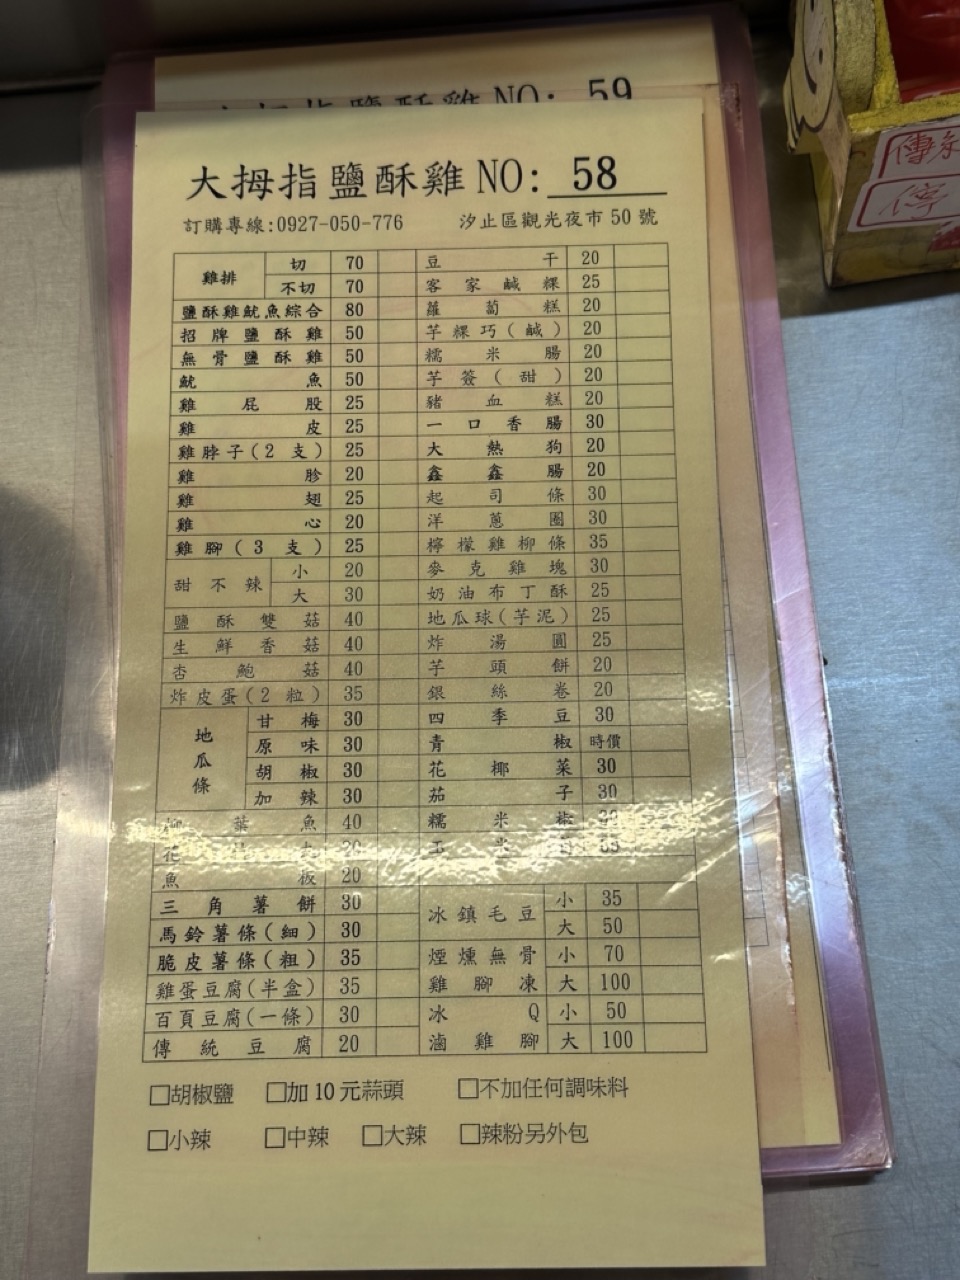 NO: 59
大拇指鹽酥雞 NO: 58
訂購專線:0927-050-776 汐止區觀光夜市 50 號
雞排 切 70
不切 70
鹽酥雞魷魚綜合 80
招牌鹽酥雞 50
無骨鹽酥雞 50
魷魚 50
雞屁股 25
雞皮 25
雞脖子(2支) 25
雞胗 20
雞翅 25
雞心 20
雞腳(3支) 25
甜不辣 小 20
大 30
鹽酥雙菇 40
生鮮香菇 40
杏鮑菇 40
炸皮蛋(2粒) 35
地瓜條 甘梅 30
原味 30
胡椒 30
加辣 30
柳葉魚 40
花
魚板 20
三角薯餅 30
馬鈴薯條(細) 30
脆皮薯條(粗) 35
雞蛋豆腐(半盒) 35
百頁豆腐(一條) 30
傳統豆腐 20
豆干 20
客家鹹粿 25
蘿蔔糕 20
芋粿巧(鹹) 20
糯米腸 20
芋簽(甜) 20
豬血糕 20
一口香腸 30
大熱狗 20
鑫鑫腸 20
起司條 30
洋蔥圈 30
檸檬雞柳條 35
麥克雞塊 30
奶油布丁酥 25
地瓜球(芋泥) 25
炸湯圓 25
芋頭餅 20
銀絲卷 20
四季豆 30
青椒 時價
花椰菜 30
茄子 30
糯米椒 30
玉米
冰鎮毛豆 小 35
大 50
煙燻無骨雞腳凍 小 70
大 100
冰Q滷雞腳 小 50
大 100
□胡椒鹽 □加10元蒜頭 □不加任何調味料
□小辣 □中辣 □大辣 □辣粉另外包